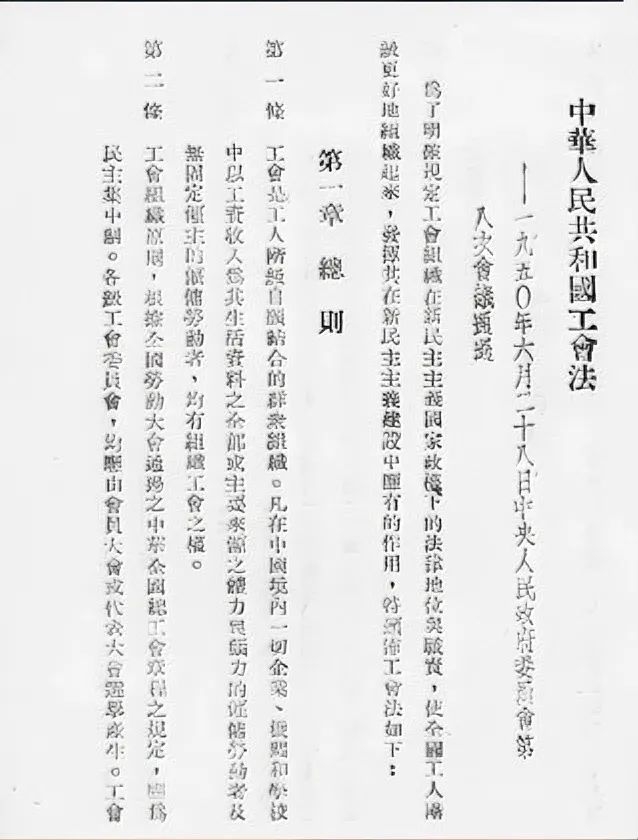 中華人民共和國工會法
——一九五〇年六月二十八日中央人民政府委員會第
八次會議通過
爲了明確規定工會組織在新民主主義國家政權下的法律地位與職責，使全國工人階
級更好地組織起來，發揮其在新民主主義建設中應有的作用，特頒佈工會法如下：
第一章 總則
第一條 工會是工人階級自願結合的群衆組織。凡在中國境內一切企業、機關和學校
中以工資收入爲其生活資料之全部或主要來源之體力與腦力的僱傭勞動者及
無固定僱主的僱傭勞動者，均有組織工會之權。
第二條 工會組織原則，根據全國勞動大會通過之中華全國總工會章程之規定，國爲
民主集中制。各級工會委員會，均應由會員大會或代表大會選舉產生。工會